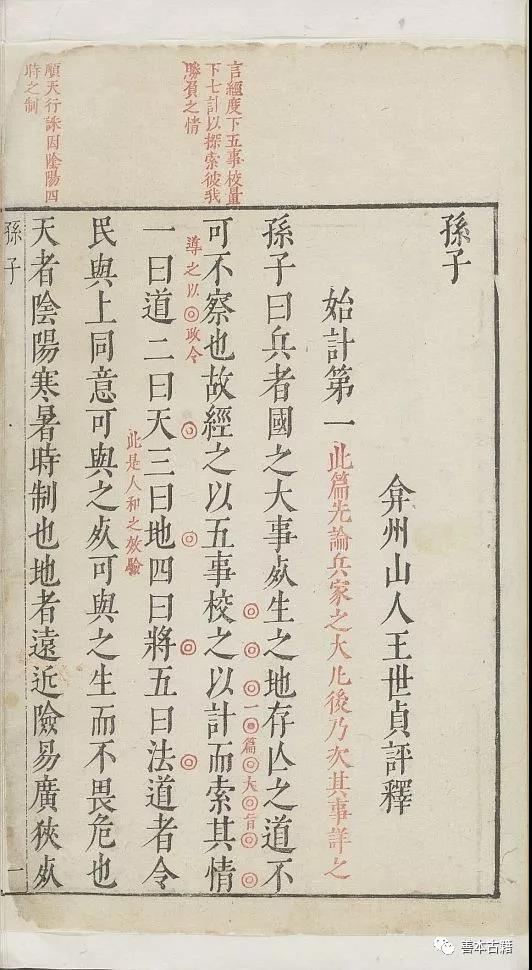 孫子
弇州山人王世貞評釋
始計第一此篇先論兵家之大凡後乃次其事詳之
孫子曰兵者國之大事死生之地存亡之道不
一篇大旨
言經度下五事校量
下七計以探索彼我
勝負之情
可不察也故經之以五事校之以計而索其情
導之以政令
一曰道二曰天三曰地四曰將五曰法道者令
此是人和之效驗
民與上同意可與之死可與之生而不畏危也
順天行誅因陰陽四
時之制
天者陰陽寒暑時制也地者遠近險易廣狹死
孫子
一
善本古籍